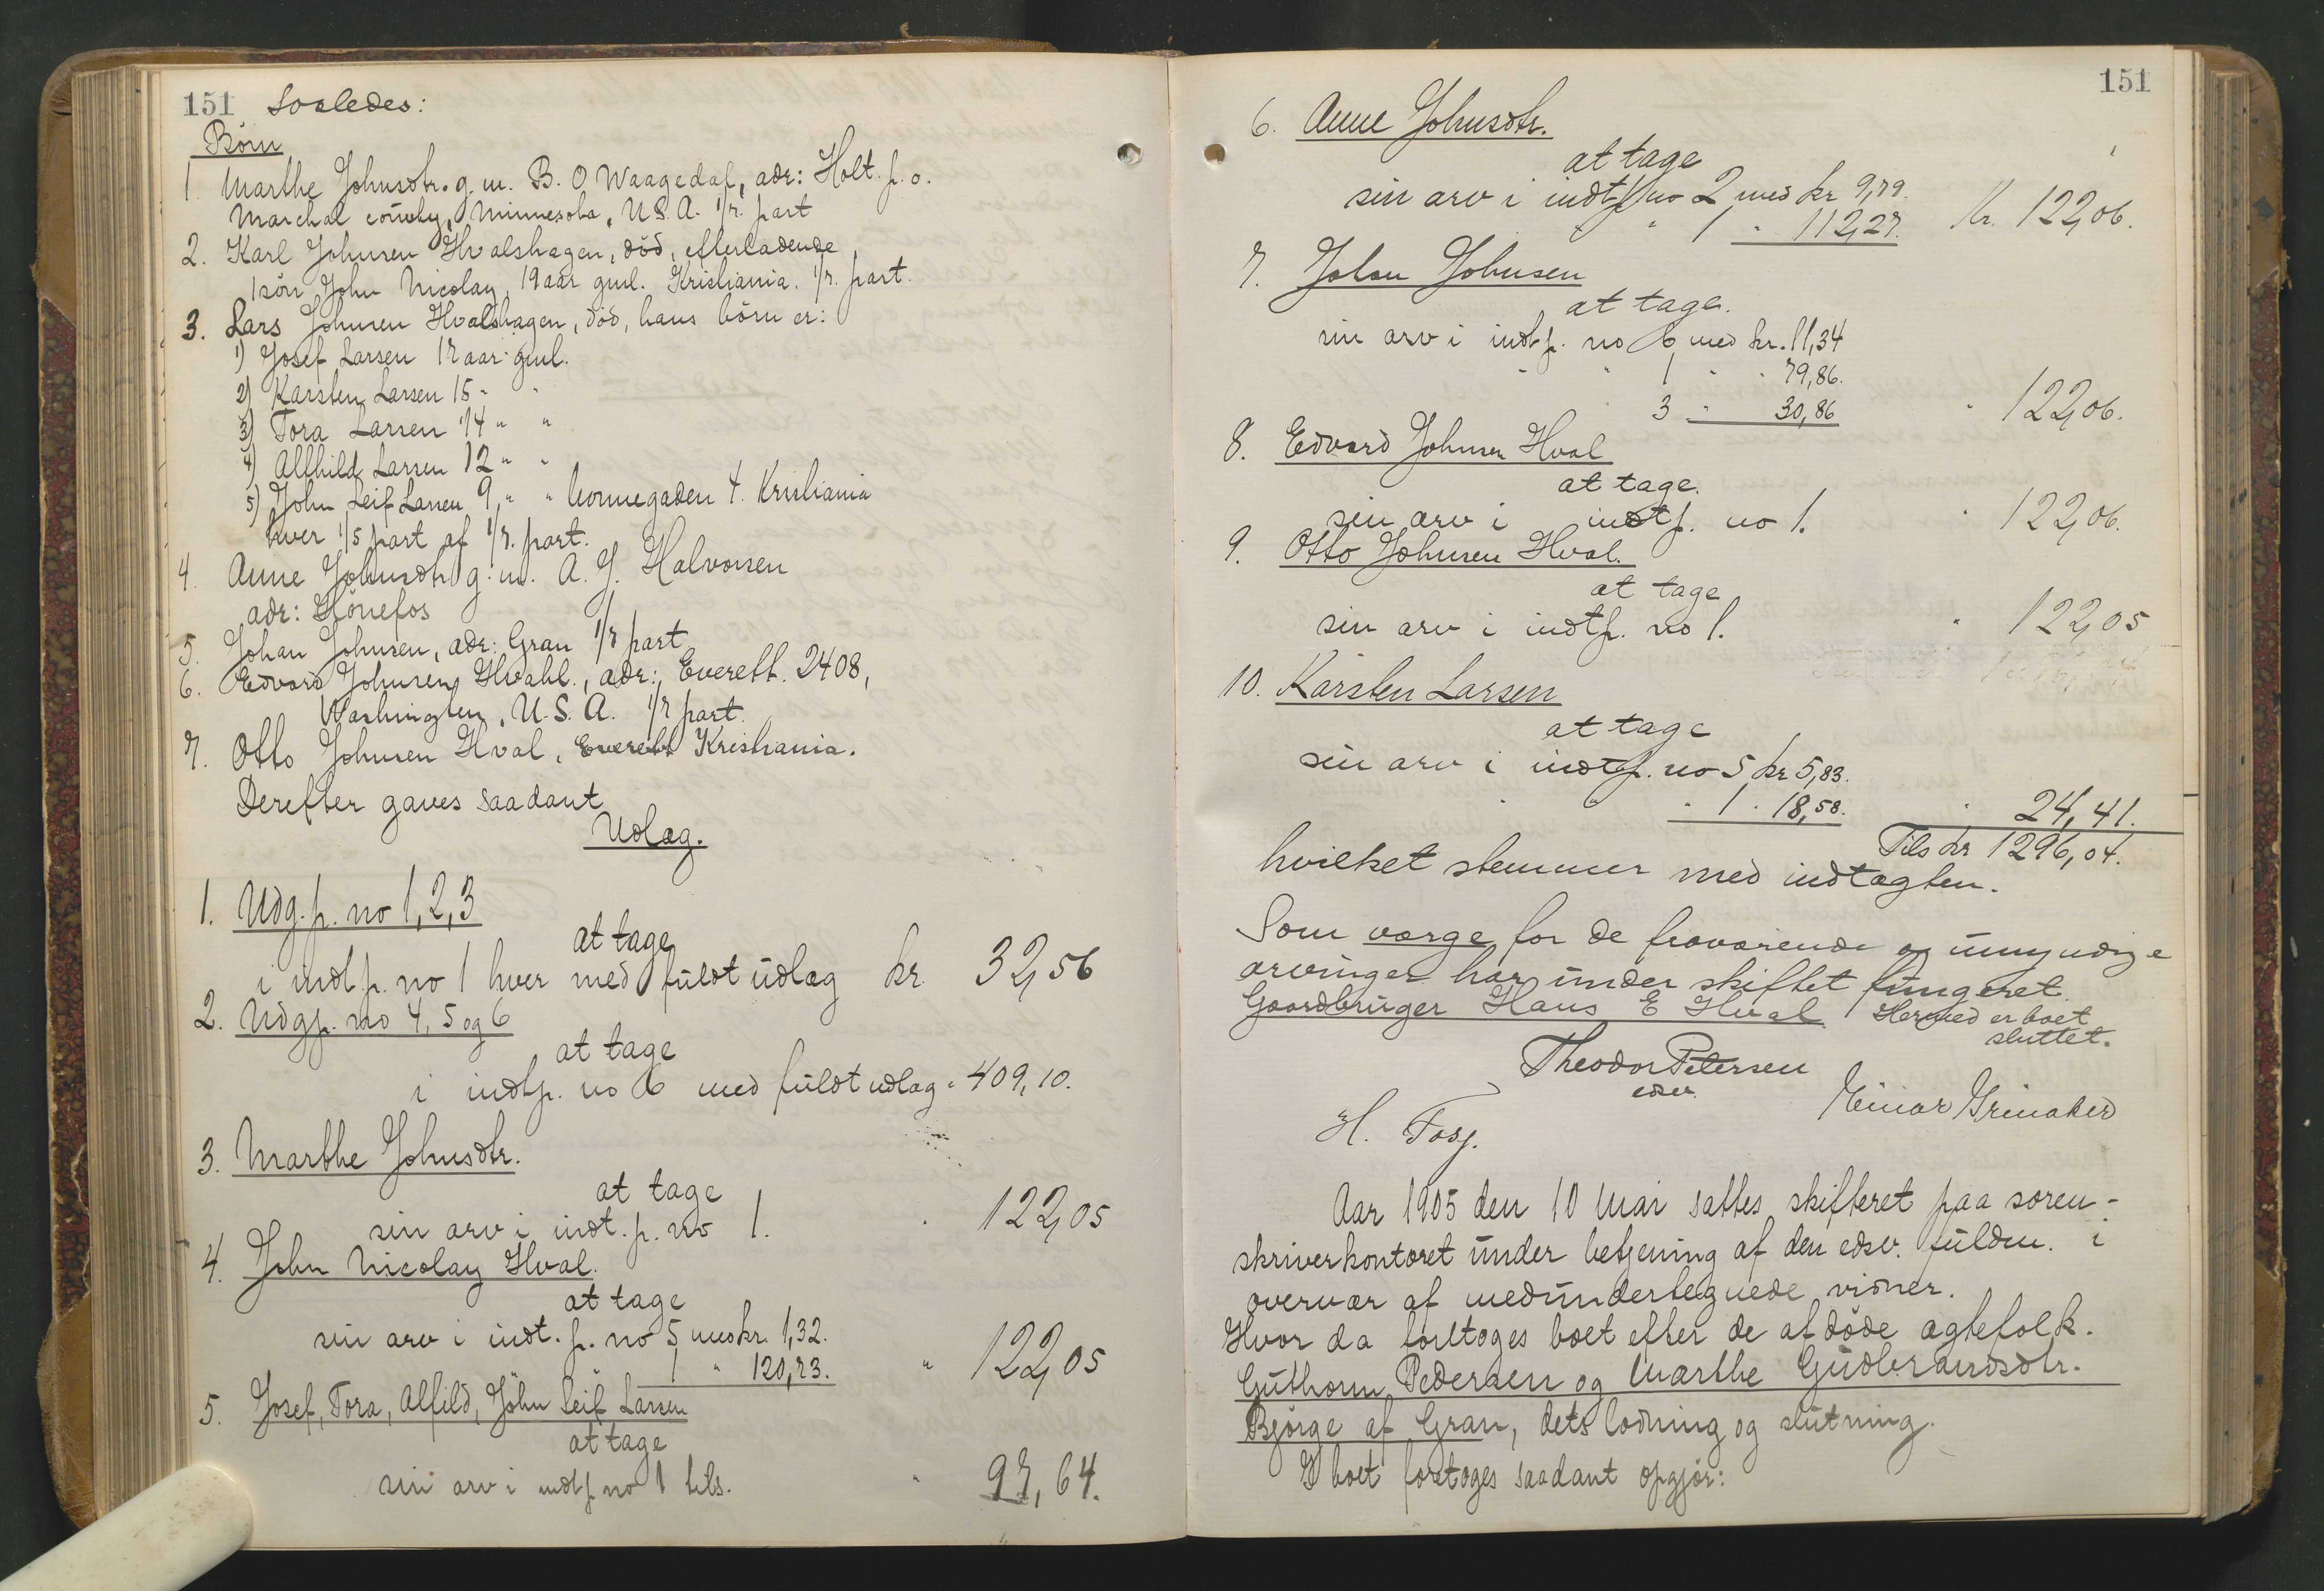 151 Saaledes:
Børn
1 Marthe Johnsdtr. g. m. B. O Waagedal, adr: Holt p. o.
Marchal county, Minnesota, U.S.A. 1/7. part
2. Karl Johnsen Hvalshagen, død, efterladende
1 søn John Nicolay, 19 aar gml. Kristiania. 1/7. part.
3. Lars Johnsen Hvalshagen, død, hans børn er:
1) Josef Larsen 17 aar gml.
2) Karsten Larsen 15 " "
3) Tora Larsen 14 " "
4) Alfhild Larsen 12 " "
5) John Leif Larsen 9 " " 4. Kristiania
hver 1/5 part af 1/7. part.
4. Anne Johnsdtr g. m. A. J. Halvorsen
adr: Hönefos
5. Johan Johnsen, adr: Gran 1/7 part
6. Edvard Johnsen Hvahl., adr:, Everett. 2408,
Washington, U.S.A. 1/7 part.
7. Otto Johnsen Hval, Everett Kristiania.
Derefter gaves saadant
Udlæg.
1. Udg. p. no 1, 2, 3
at tage
i indt. p. no 1 hver med fuldt udlæg kr. 32,56
2. Udgp. no 4, 5 og 6
at tage
i indtp. no 6 med fuldt udlæg " 409,10.
3. Marthe Johnsdtr.
at tage
sin arv i indt. p. no 1. " 122,05
4. John Nicolay Hval.
at tage
sin arv i indt. p. no 5 med kr. 1,32.
1 " 120,73. " 122,05
5. Josef, Tora, Alfild, John Leif Larsen
at tage
sin arv i indtp. no 1 tils. " 97,64.
151
6. Anne Johnsdtr.
at tage
sin arv i indtp no 2 med kr 9,79.
" " 1 " 112,27. Kr. 122,06.
7. Johan Johnsen
at tage.
sin arv i indtp. no 6 med kr. 11,34
" " 1 " " 79,86.
" 3 " 30,86 " 122,06.
8. Edvard Johnsen Hval
at tage.
sin arv i indtp. no 1. " 122,06.
9. Otto Johnsen Hval.
at tage
sin arv i indtp. no 1. " 122,05
10. Karsten Larsen
at tage
sin arv i indtp. no 5 kr 5,83.
" " " 1 " 18,58. " 24,41.
Tils kr 1296,04.
hvilket stemmer med indtægten.
Som værge for de fraværende og umyndige
arvinger har under skiftet fungeret
Gaardbruger Hans E Hval. Hermed er boet
sluttet.
Theodor Petersen
edsv.
H. Foss. Einar Grinaker
Aar 1905 den 10 Mai sattes skifteret paa soren-
skriverkontoret under betjening af den edsv. fuldm. i
overvær af medundertegnede vidner.
Hvor da foretoges boet efter de afdøde ægtefolk.
Guthorm Pedersen og Marthe Gudbrandsdtr.
Bjørge af Gran, dets lodning og slutning.
I boet foretoges saadant opgjør: